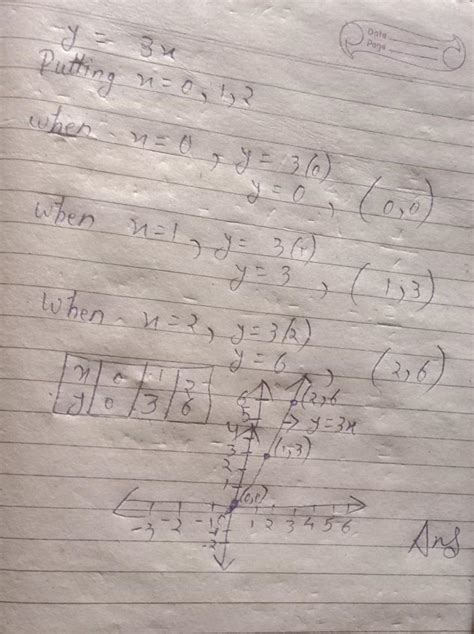 Date
Page
y = 3x
Putting x=0, 1, 2
when x=0, y= 3(0)
y=0, (0,0)
when x=1, y= 3(1)
y=3, (1,3)
when x=2, y=3(2)
y=6, (2,6)
x | 0 | 1 | 2
y | 0 | 3 | 6
6
5
4
3
2
1
(2,6
→ y=3x
(1,3)
(0,0)
-3 -2 -1 0 1 2 3 4 5 6
-1
-2
Ans